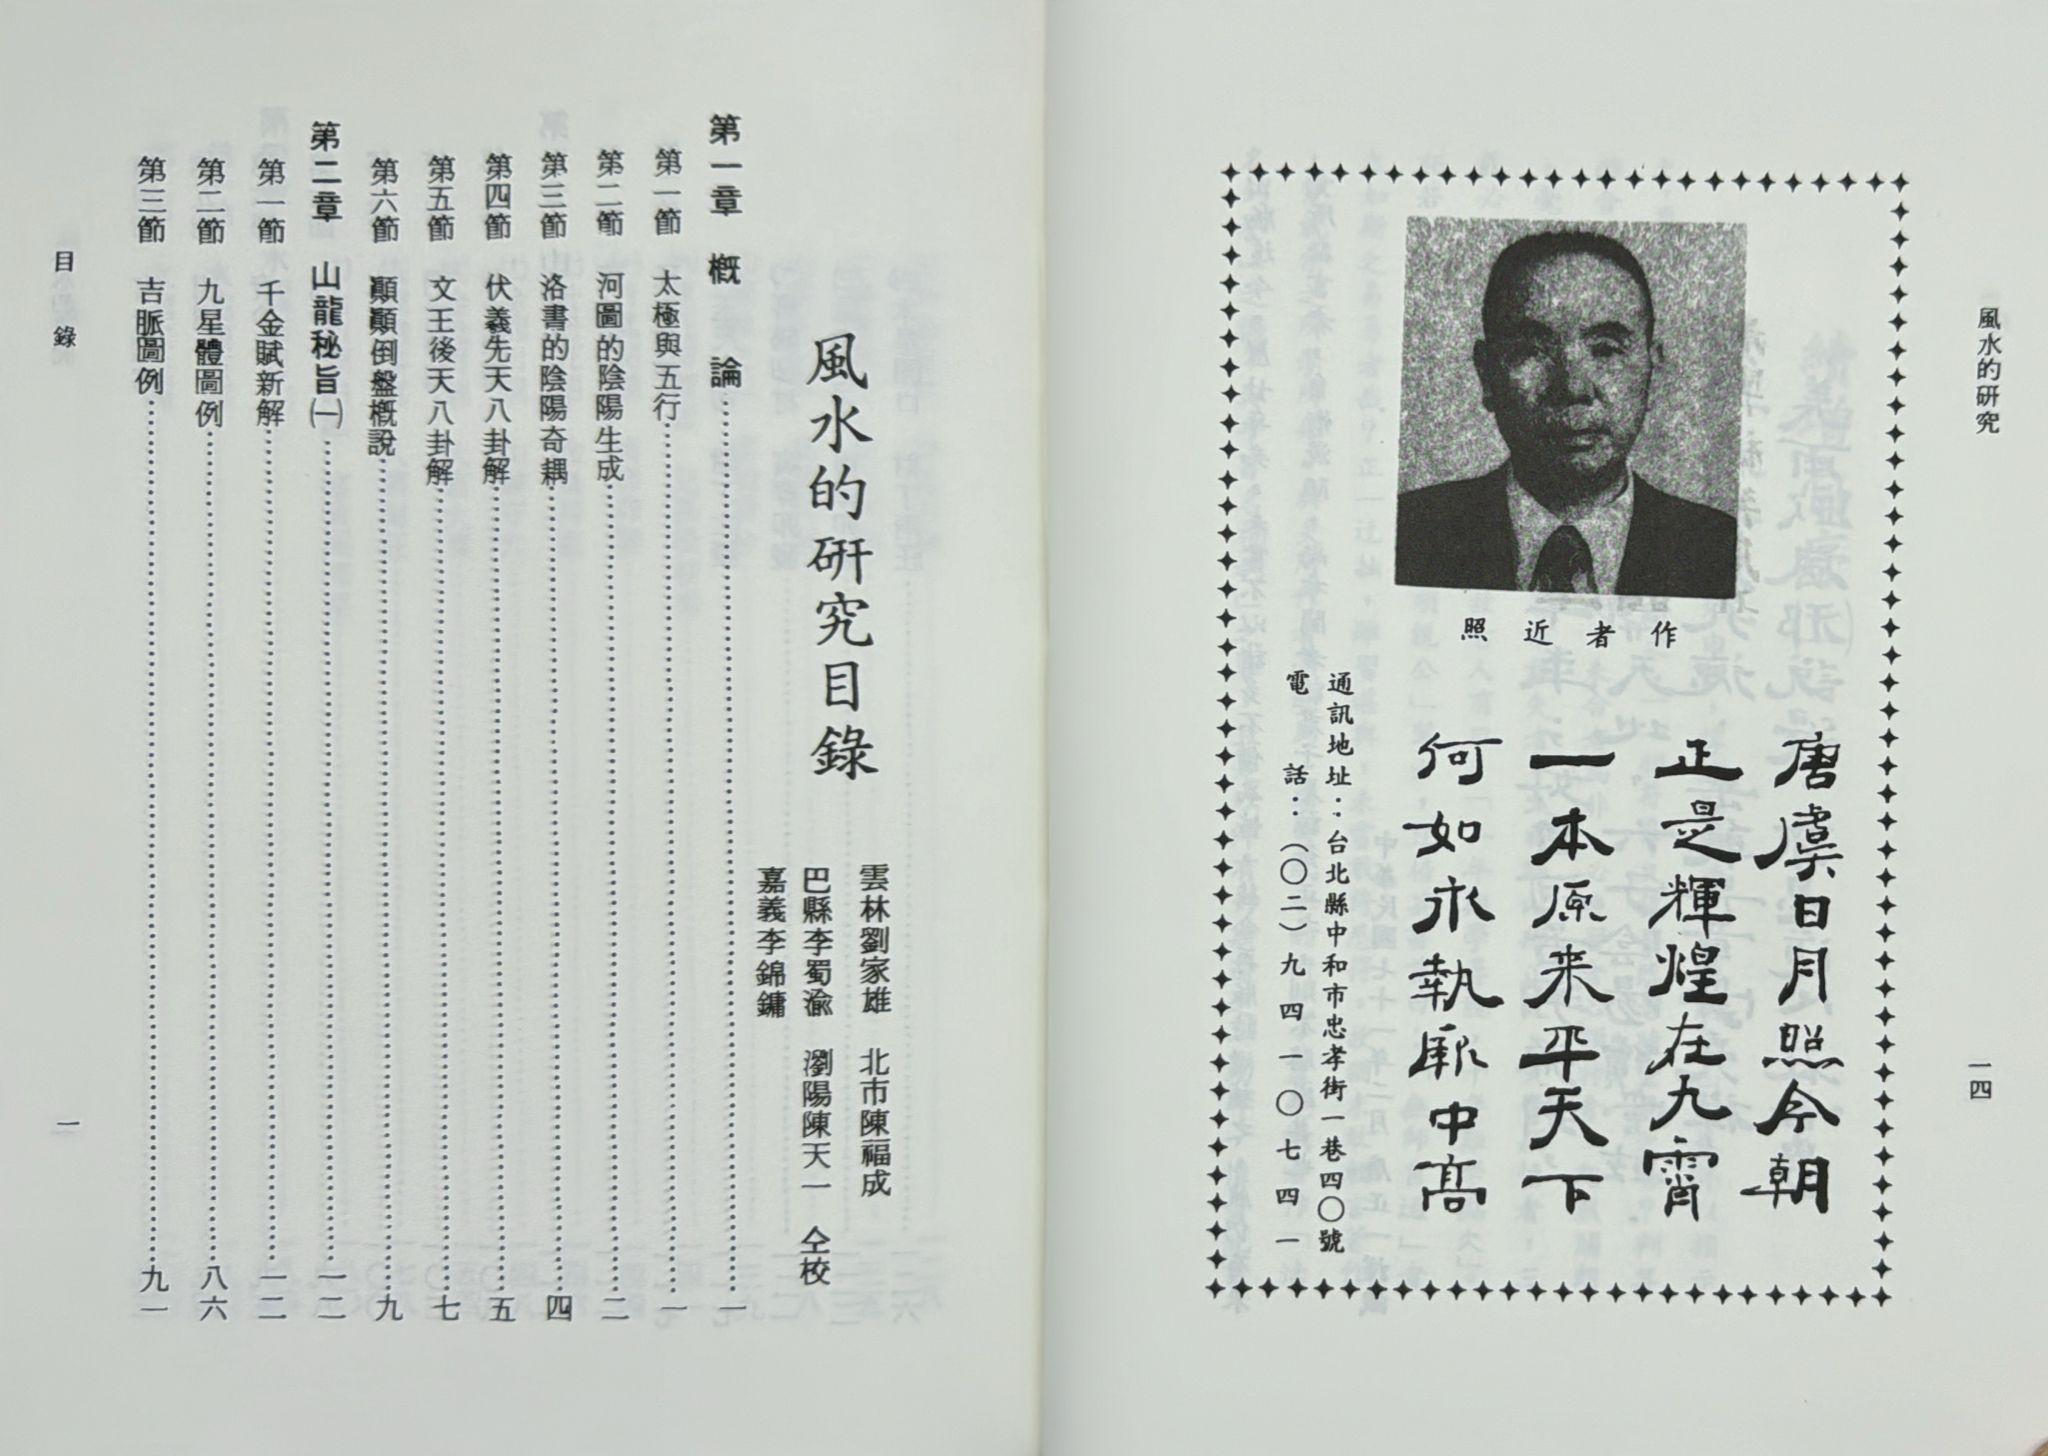 風水的研究
一四
作者近照
唐虞日月照今朝
正是輝煌在九霄
一本原来平天下
何如永執厥中高
通訊地址：台北縣中和市忠孝街一巷四〇號
電話：（〇二）九四一〇七四一
風水的研究目錄
雲林劉家雄　北市陳福成
巴縣李蜀渝　瀏陽陳天一　仝校
嘉義李錦鏞
第一章　概　論……一
第一節　太極與五行……一
第二節　河圖的陰陽生成……二
第三節　洛書的陰陽奇耦……四
第四節　伏羲先天八卦解……五
第五節　文王後天八卦解……七
第六節　顛顛倒盤概說……九
第二章　山龍秘旨㈠……一二
第一節　千金賦新解……一二
第二節　九星體圖例……八六
第三節　吉脈圖例……九一
目　錄
一